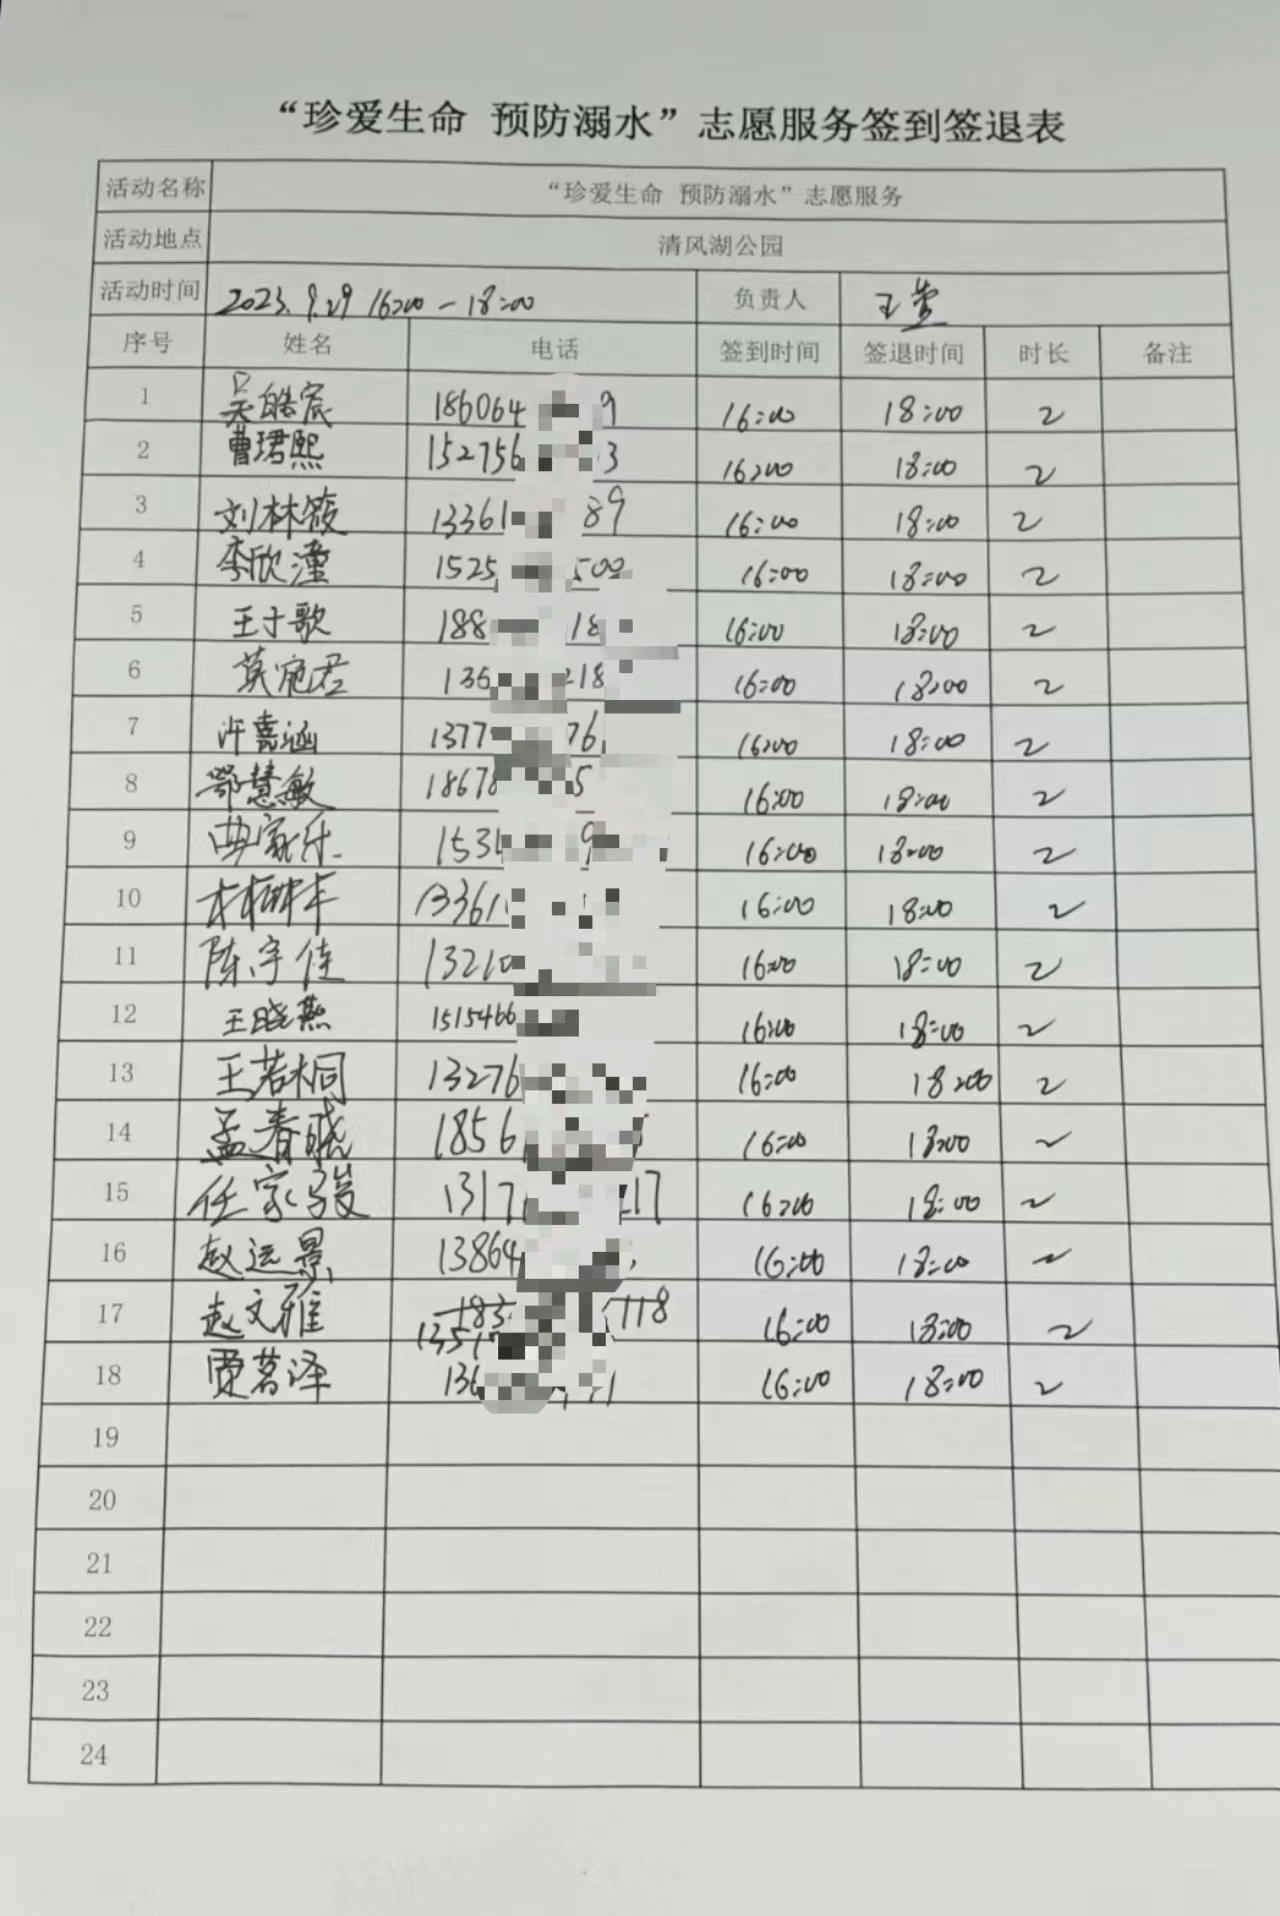 “珍爱生命 预防溺水”志愿服务签到签退表
活动名称 “珍爱生命 预防溺水”志愿服务
活动地点 清风湖公园
活动时间 2023.9.29 16:00-18:00 负责人 王萱
序号 姓名 电话 签到时间 签退时间 时长 备注
1 吴皓宸 186064 9 16:00 18:00 2
2 曹珺熙 152756 3 16:00 18:00 2
3 刘林筱 13361 89 16:00 18:00 2
4 李欣潼 1525 500 16:00 18:00 2
5 王子歌 188 18 16:00 18:00 2
6 莫宛君 136 218 16:00 18:00 2
7 许嘉涵 1377 76 16:00 18:00 2
8 鄂慧敏 18678 5 16:00 18:00 2
9 曲家乐 153 9 16:00 18:00 2
10 13361 16:00 18:00 2
11 陈宇佳 13210 16:00 18:00 2
12 王晓燕 1515466 16:00 18:00 2
13 王若桐 13276 16:00 18:00 2
14 孟春晓 1856 16:00 18:00 2
15 任家骏 1317 17 16:00 18:00 2
16 赵远景 13864 16:00 18:00 2
17 赵文雅 183 118 16:00 18:00 2
1351
18 贾茗泽 136 1 16:00 18:00 2
19
20
21
22
23
24